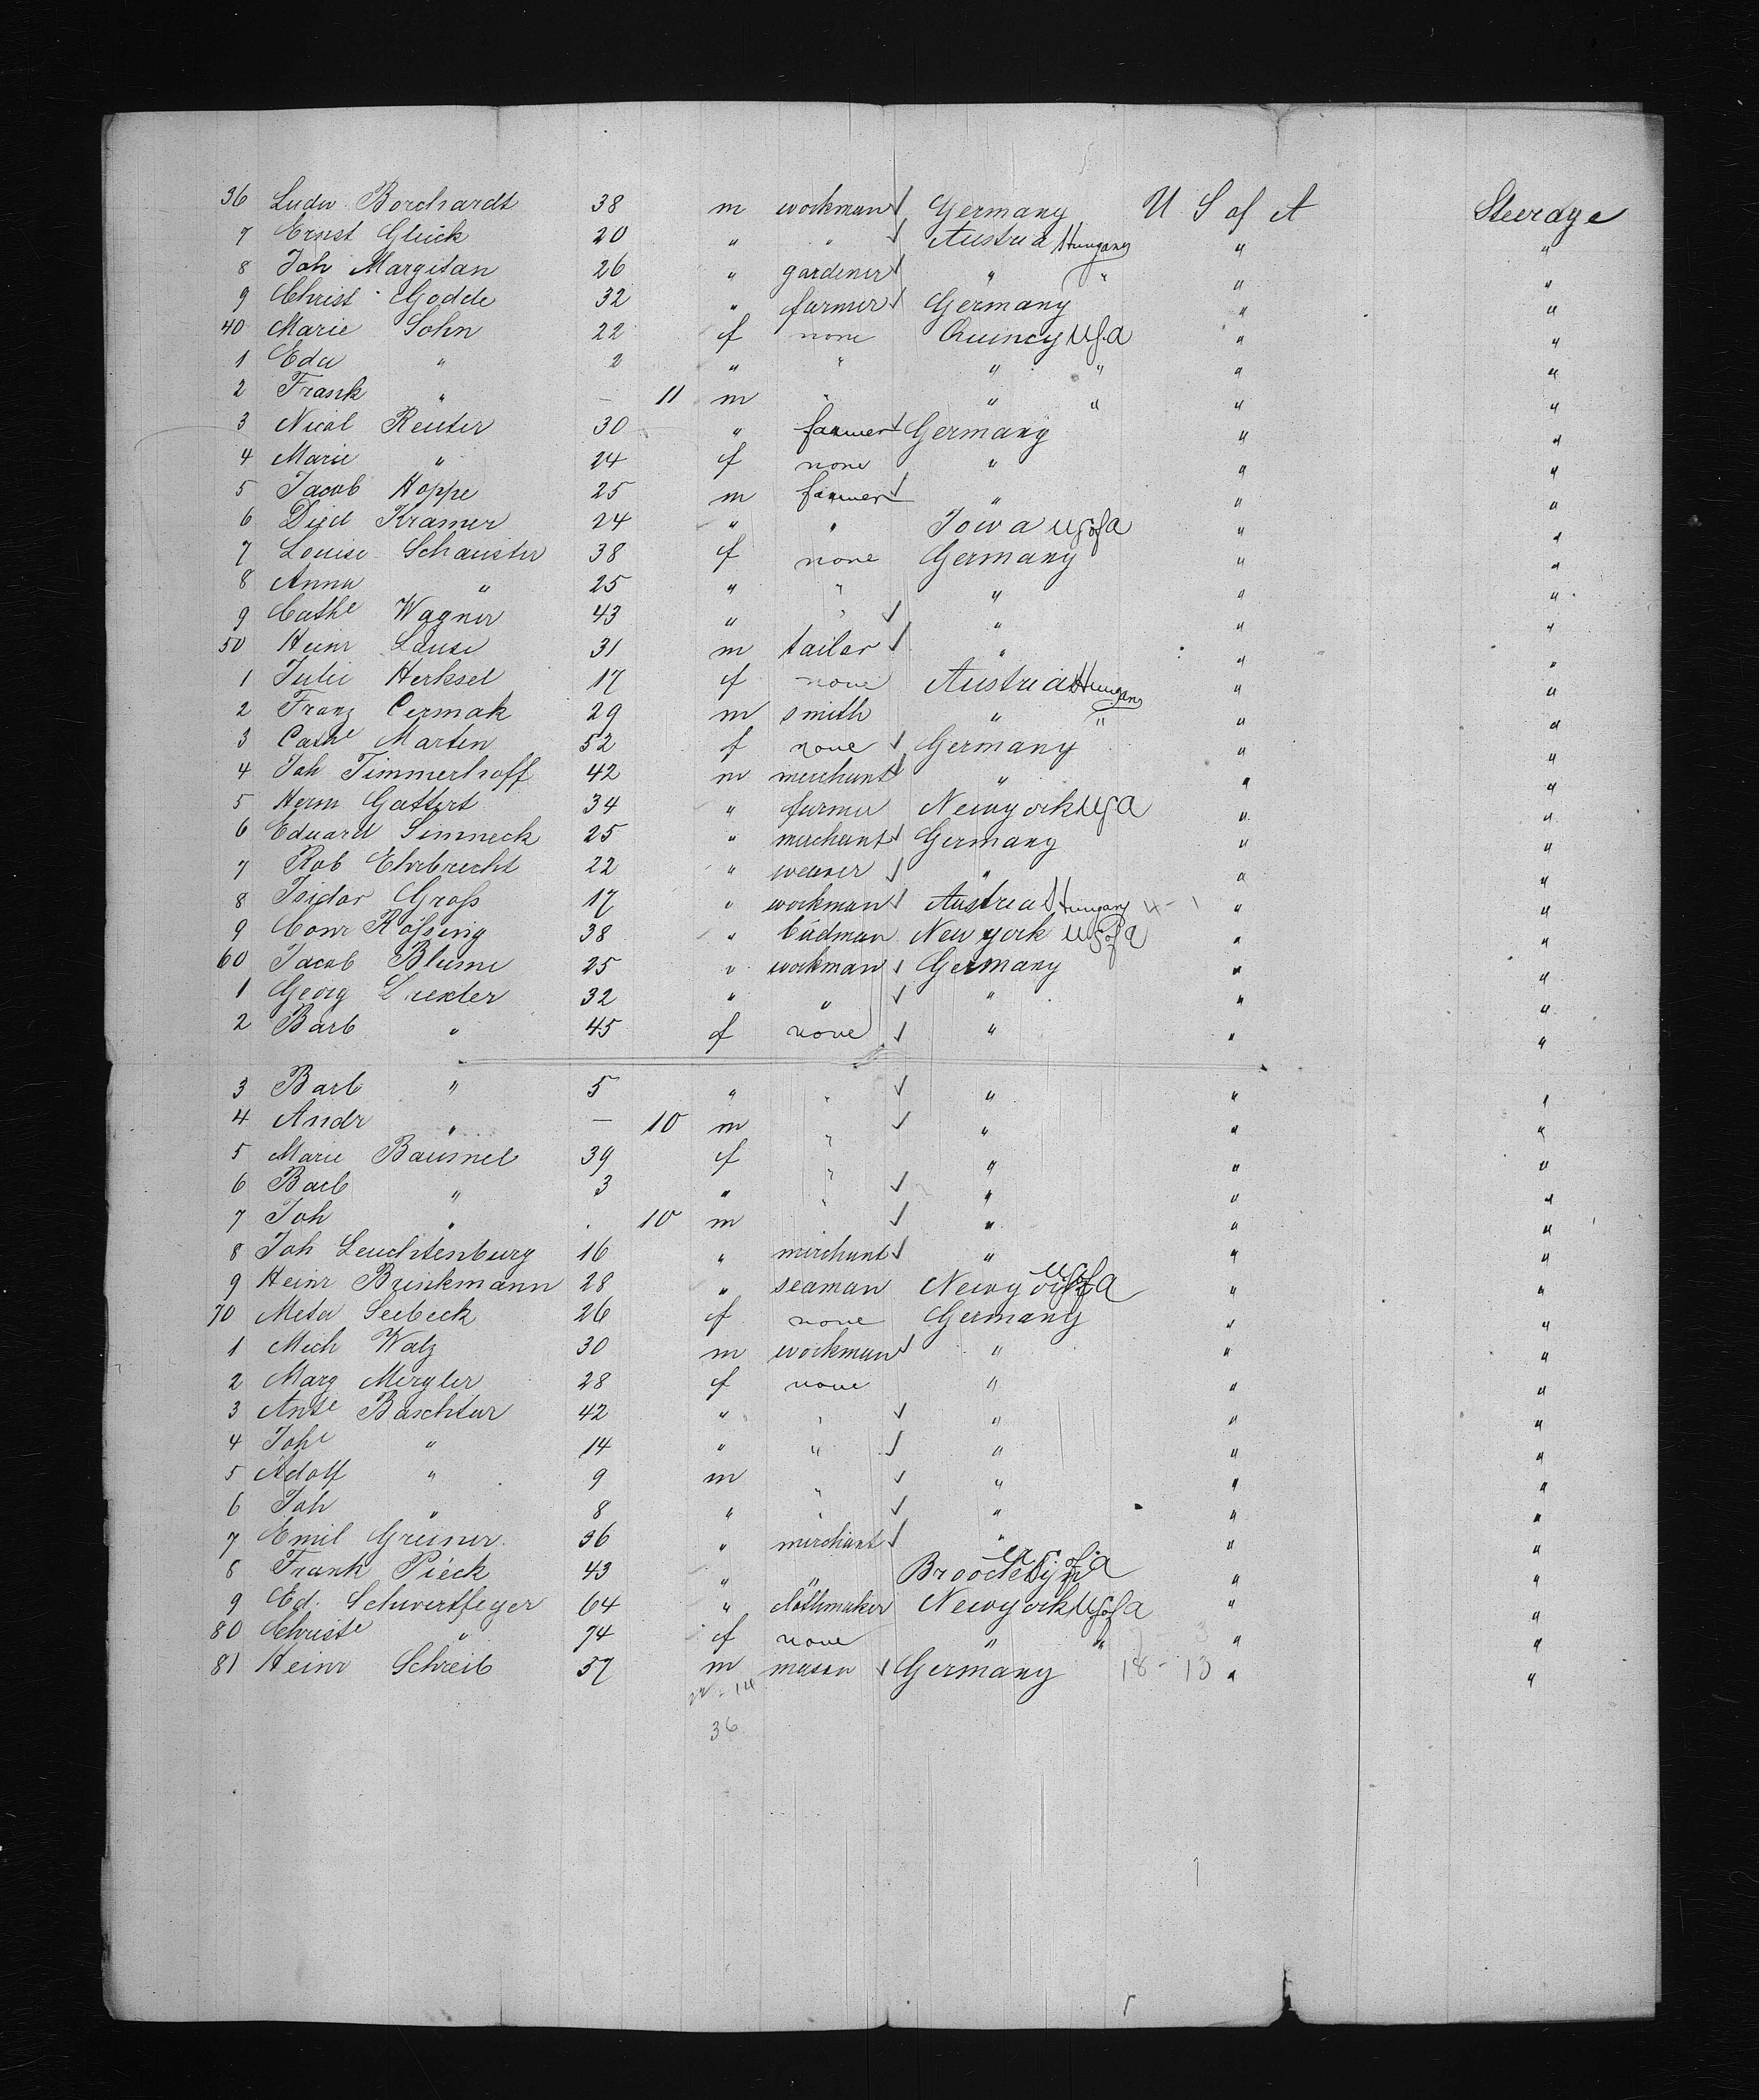 36 Ludw Borchardt 38 m workman Germany U S of A Steerage
7 Ernst Gluck 20 " " Austria Hungary " "
8 Joh Margitan 26 " gardener " " " "
9 Christ Godde 32 " farmer Germany " "
40 Marie Sohn 22 f none Quincy U.S.A " "
1 Eda " 2 " " " " " "
2 Frank " — 11 m " " " " "
3 Nicol Reuter 30 " farmer Germany " "
4 Marie " 24 f none " " "
5 Jacob Hoppe 25 m farmer " " "
6 Died Kramer 24 " " Iowa US of A " "
7 Louise Schauster 38 f none Germany " "
8 Anna " 25 " " " " "
9 Cathe Wagner 43 " " " " "
50 Heinr Lause 31 m tailor " " "
1 Julie Herksel 17 f none Austria Hungary " "
2 Franz Cermak 29 m smith " " " "
3 Cathe Martin 52 f none Germany " "
4 Joh Timmerhoff 42 m merchant " " "
5 Herm Gattert 34 " farmer Newyork USA " "
6 Eduard Simneck 25 " merchant Germany " "
7 Rob Ehrbrecht 22 " weaver " " "
8 Isidor Gross 17 " workman Austria Hungary 4 - 1 " "
9 Conr Rössing 38 " New york US of A " "
60 Jacob Blume 25 " workman Germany " "
1 Georg 32 " " " " "
2 Barb " 45 f none " " "
3 Barb " 5 " " " " "
4 Andr " — 10 m " " " "
5 Marie Baumel 39 f " " " "
6 Barb " 3 " " " " "
7 Joh " . 10 m " " "
8 Joh Leuchtenburg 16 " merchant " " "
9 Heinr Brinkmann 28 " seaman Newyork US of A " "
70 Meta Seebeck 26 f none Germany " "
1 Mich Walz 30 m workman " " "
2 Marg Mergler 28 f none " " "
3 Ante Baschtur 42 " " " " "
4 Johe " 14 " " " " "
5 Adolf " 9 m " " " "
6 Joh " 8 " " " " "
7 Emil Greiner 36 " merchant " " "
8 Frank Pieck 43 " " U S of A " "
9 Ed. Schwertfeger 64 " clothmaker Newyork US of A " "
80 Christe " 74 f none " " 3 " "
81 Heinr Schreib 37 m mason Germany 18 - 13 " "
22 - 14
36